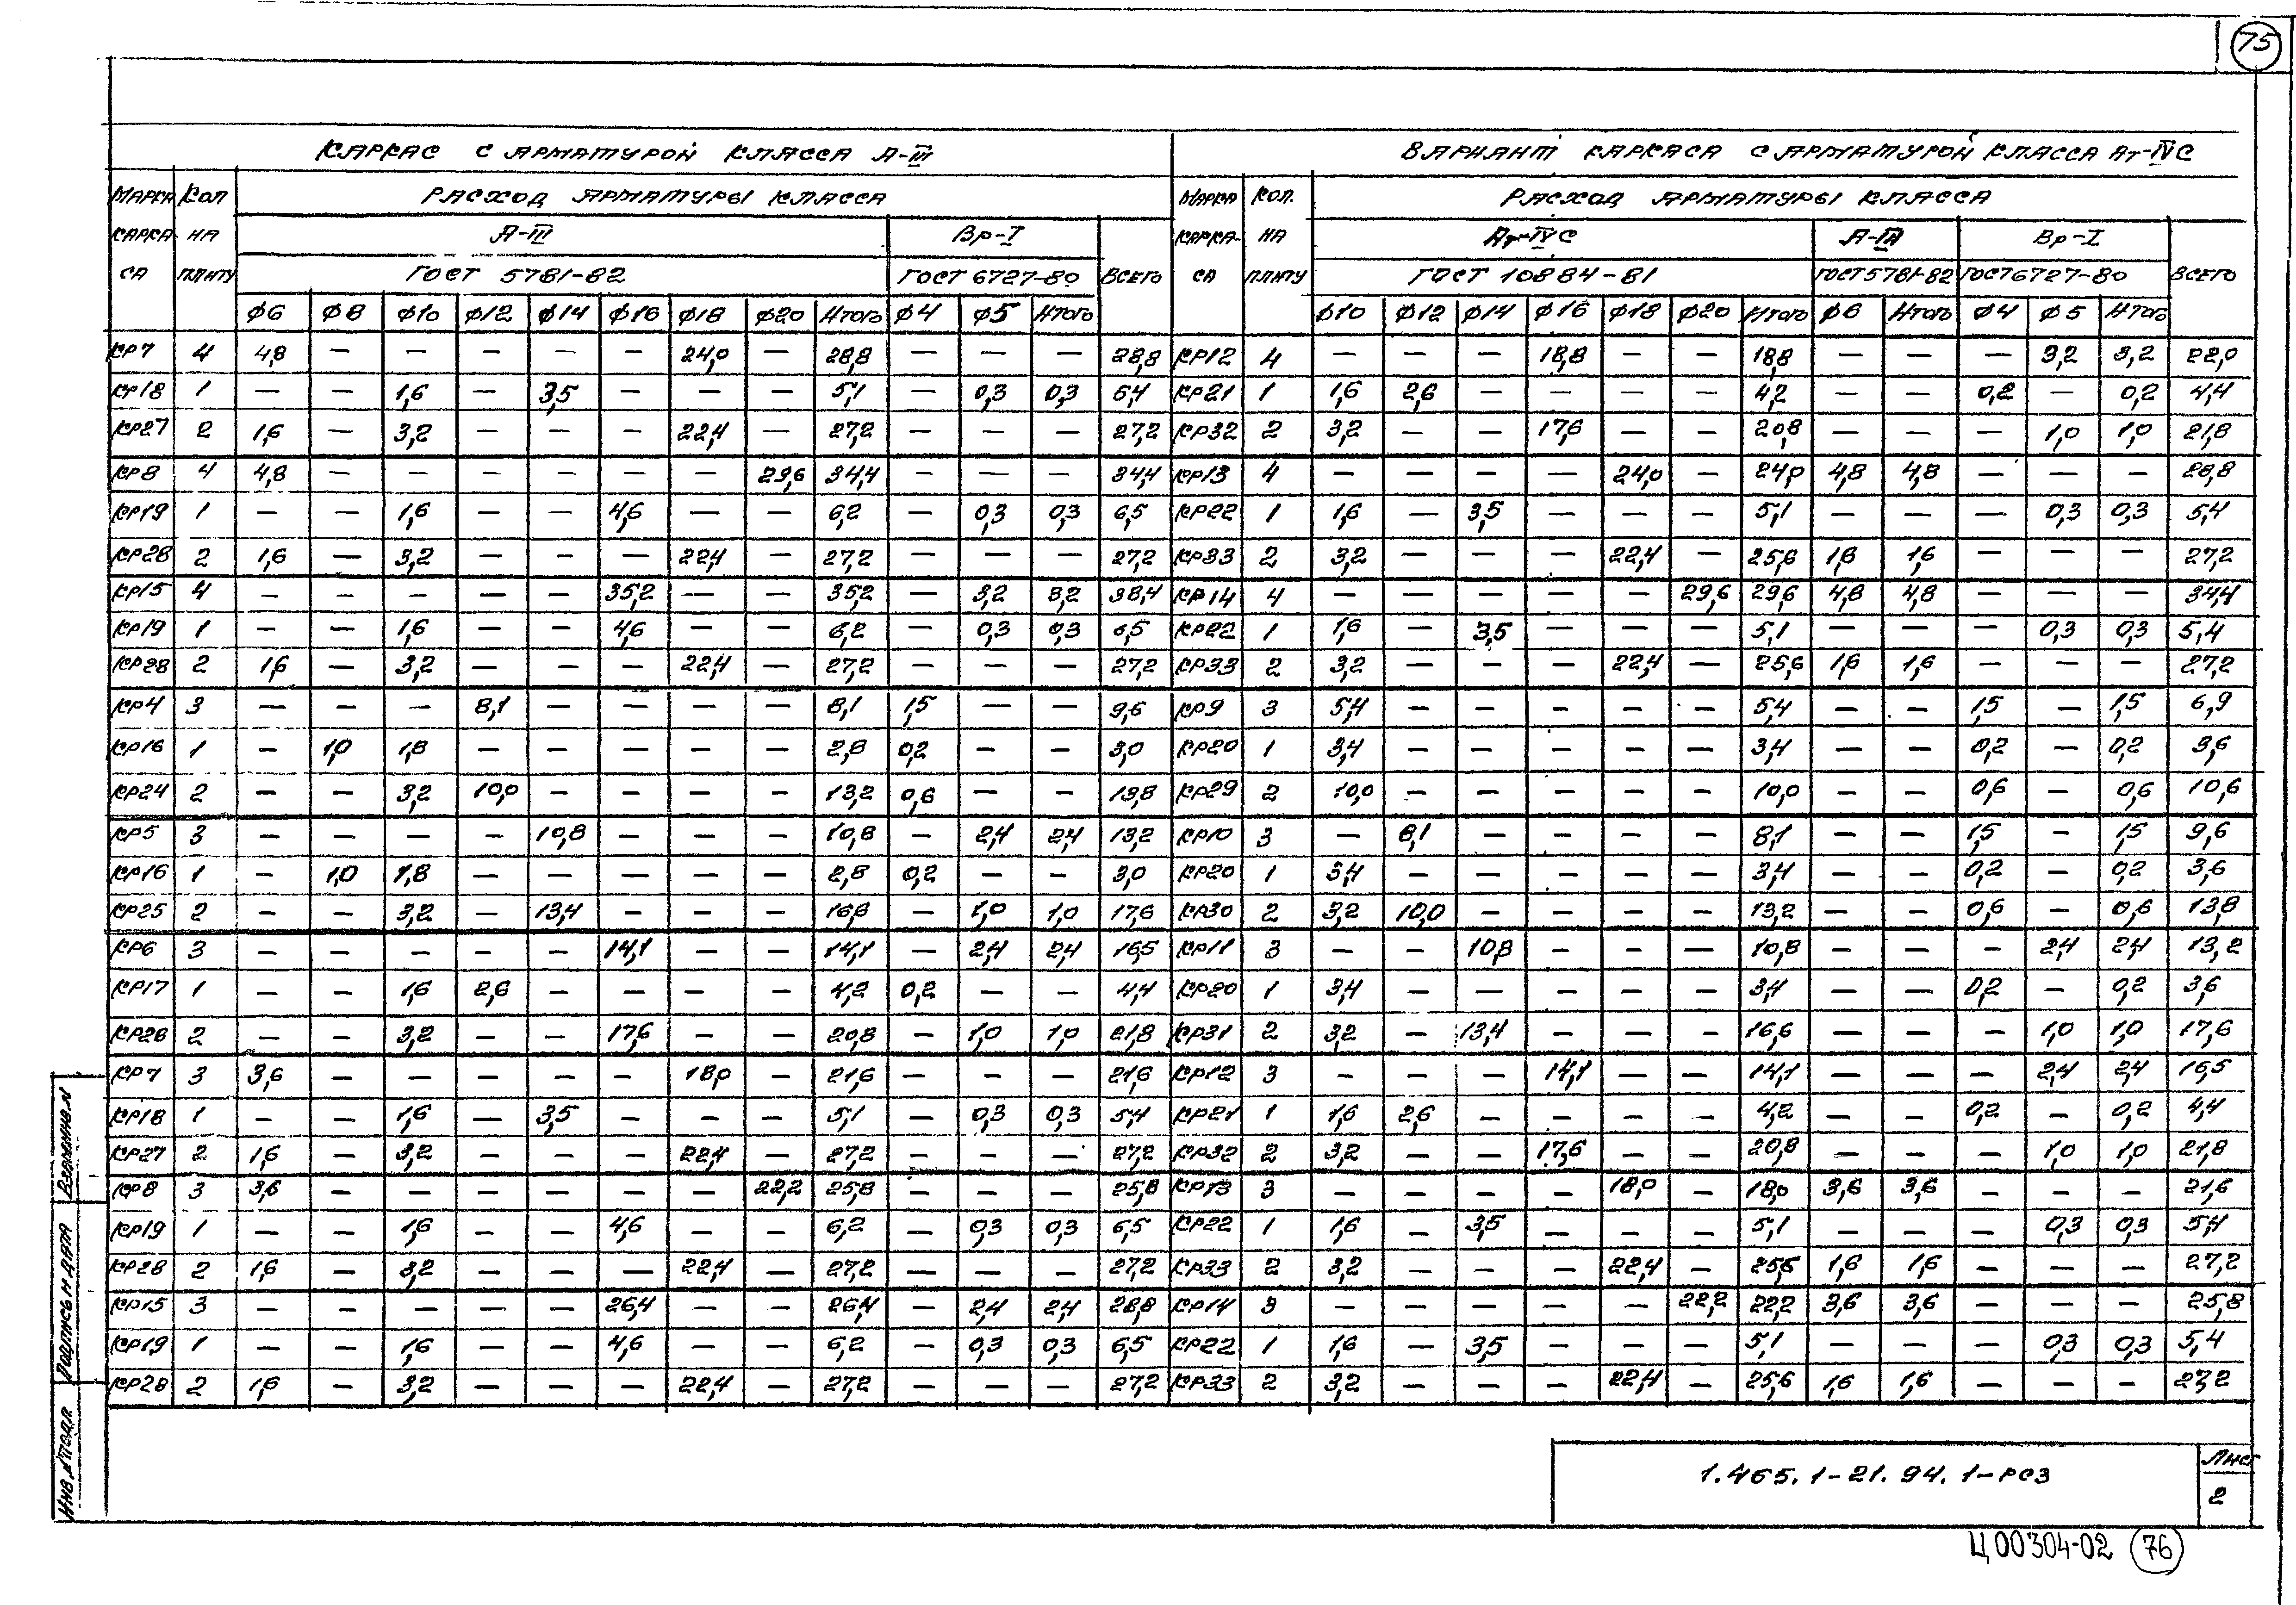 75
КАРКАС С АРМАТУРОЙ КЛАССА А-III ВАРИАНТ КАРКАСА С АРМАТУРОЙ КЛАССА Ат-IVС
МАРКА КОЛ РАСХОД АРМАТУРЫ КЛАССА МАРКА КОЛ. РАСХОД АРМАТУРЫ КЛАССА
КАРКА- НА А-III Вр-I КАРКА- НА Ат-IVС А-III Вр-I
СА ПЛИТУ ГОСТ 5781-82 ГОСТ 6727-80 ВСЕГО СА ПЛИТУ ГОСТ 10884-81 ГОСТ 5781-82 ГОСТ 6727-80 ВСЕГО
Ф6 Ф8 Ф10 Ф12 Ф14 Ф16 Ф18 Ф20 Итого Ф4 Ф5 Итого Ф10 Ф12 Ф14 Ф16 Ф18 Ф20 Итого Ф6 Итого Ф4 Ф5 Итого
КР7 4 4,8 — — — — — 24,0 — 28,8 — — — 28,8 КР12 4 — — — 18,8 — — 18,8 — — — 3,2 3,2 22,0
КР18 1 — — 1,6 — 3,5 — — — 5,1 — 0,3 0,3 5,4 КР21 1 1,6 2,6 — — — — 4,2 — — 0,2 — 0,2 4,4
КР27 2 1,6 — 3,2 — — — 22,4 — 27,2 — — — 27,2 КР32 2 3,2 — — 17,6 — — 20,8 — — — 1,0 1,0 21,8
КР8 4 4,8 — — — — — — 29,6 34,4 — — — 34,4 КР13 4 — — — — 24,0 — 24,0 4,8 4,8 — — — 28,8
КР19 1 — — 1,6 — — 4,6 — — 6,2 — 0,3 0,3 6,5 КР22 1 1,6 — 3,5 — — — 5,1 — — — 0,3 0,3 5,4
КР28 2 1,6 — 3,2 — — — 22,4 — 27,2 — — — 27,2 КР33 2 3,2 — — — 22,4 — 25,6 1,6 1,6 — — — 27,2
КР15 4 — — — — — 35,2 — — 35,2 — 3,2 3,2 38,4 КР14 4 — — — — — 29,6 29,6 4,8 4,8 — — — 34,4
КР19 1 — — 1,6 — — 4,6 — — 6,2 — 0,3 0,3 6,5 КР22 1 1,6 — 3,5 — — — 5,1 — — — 0,3 0,3 5,4
КР28 2 1,6 — 3,2 — — — 22,4 — 27,2 — — — 27,2 КР33 2 3,2 — — — 22,4 — 25,6 1,6 1,6 — — — 27,2
КР4 3 — — — 8,1 — — — — 8,1 1,5 — — 9,6 КР9 3 5,4 — — — — — 5,4 — — 1,5 — 1,5 6,9
КР16 1 — 1,0 1,8 — — — — — 2,8 0,2 — — 3,0 КР20 1 3,4 — — — — — 3,4 — — 0,2 — 0,2 3,6
КР24 2 — — 3,2 10,0 — — — — 13,2 0,6 — — 13,8 КР29 2 10,0 — — — — — 10,0 — — 0,6 — 0,6 10,6
КР5 3 — — — — 10,8 — — — 10,8 — 2,4 2,4 13,2 КР10 3 — 8,1 — — — — 8,1 — — 1,5 — 1,5 9,6
КР16 1 — 1,0 1,8 — — — — — 2,8 0,2 — — 3,0 КР20 1 3,4 — — — — — 3,4 — — 0,2 — 0,2 3,6
КР25 2 — — 3,2 — 13,4 — — — 16,6 — 1,0 1,0 17,6 КР30 2 3,2 10,0 — — — — 13,2 — — 0,6 — 0,6 13,8
КР6 3 — — — — — 14,1 — — 14,1 — 2,4 2,4 16,5 КР11 3 — — 10,8 — — — 10,8 — — — 2,4 2,4 13,2
КР17 1 — — 1,6 2,6 — — — — 4,2 0,2 — — 4,4 КР20 1 3,4 — — — — — 3,4 — — 0,2 — 0,2 3,6
КР26 2 — — 3,2 — — 17,6 — — 20,8 — 1,0 1,0 21,8 КР31 2 3,2 — 13,4 — — — 16,6 — — — 1,0 1,0 17,6
КР7 3 3,6 — — — — — 18,0 — 21,6 — — — 21,6 КР12 3 — — — 14,1 — — 14,1 — — — 2,4 2,4 16,5
КР18 1 — — 1,6 — 3,5 — — — 5,1 — 0,3 0,3 5,4 КР21 1 1,6 2,6 — — — — 4,2 — — 0,2 — 0,2 4,4
КР27 2 1,6 — 3,2 — — — 22,4 — 27,2 — — — 27,2 КР32 2 3,2 — — 17,6 — — 20,8 — — — 1,0 1,0 21,8
КР8 3 3,6 — — — — — — 22,2 25,8 — — — 25,8 КР13 3 — — — — 18,0 — 18,0 3,6 3,6 — — — 21,6
КР19 1 — — 1,6 — — 4,6 — — 6,2 — 0,3 0,3 6,5 КР22 1 1,6 — 3,5 — — — 5,1 — — — 0,3 0,3 5,4
КР28 2 1,6 — 3,2 — — — 22,4 — 27,2 — — — 27,2 КР33 2 3,2 — — — 22,4 — 25,6 1,6 1,6 — — — 27,2
КР15 3 — — — — — 26,4 — — 26,4 — 2,4 2,4 28,8 КР14 3 — — — — — 22,2 22,2 3,6 3,6 — — — 25,8
КР19 1 — — 1,6 — — 4,6 — — 6,2 — 0,3 0,3 6,5 КР22 1 1,6 — 3,5 — — — 5,1 — — — 0,3 0,3 5,4
КР28 2 1,6 — 3,2 — — — 22,4 — 27,2 — — — 27,2 КР33 2 3,2 — — — 22,4 — 25,6 1,6 1,6 — — — 27,2
Взам.инв.N
Подпись и дата
Инв.N подл.
1.465.1-21.94.1-РС3
Лист
2
Ц00304-02 76